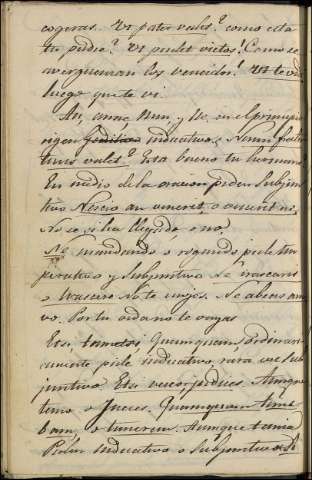 cogeras. Ut pater vales? como esta
tu padre? Ut pudet victos! Como se
averguenzan los vencidos! Ut te vidi
luego que te vi.
An, anne, Num, y Ne, en el principio
rigen indicativo. Numn frater
tuus valet? Esta bueno tu hermano?
En medio de la oracion piden Subjun
tivo Nescio an veneret, o
No se si ha llegado o no.
Ne mandando o rogando pide Im
perativo y Subjuntivo Ne irascaris
o Irascere No te enojes. Ne abeas am
vo. Por tu vida no te vayas
Etsi tametsi Quamquam ordinari
amente pide indicativo rara vez Sub
juntivo Etsi vereor judices. Aunque
temo o Jueces. Quamquam time
bam, o timerem. Aunque temia
Piden Indicativo o Subjuntivo